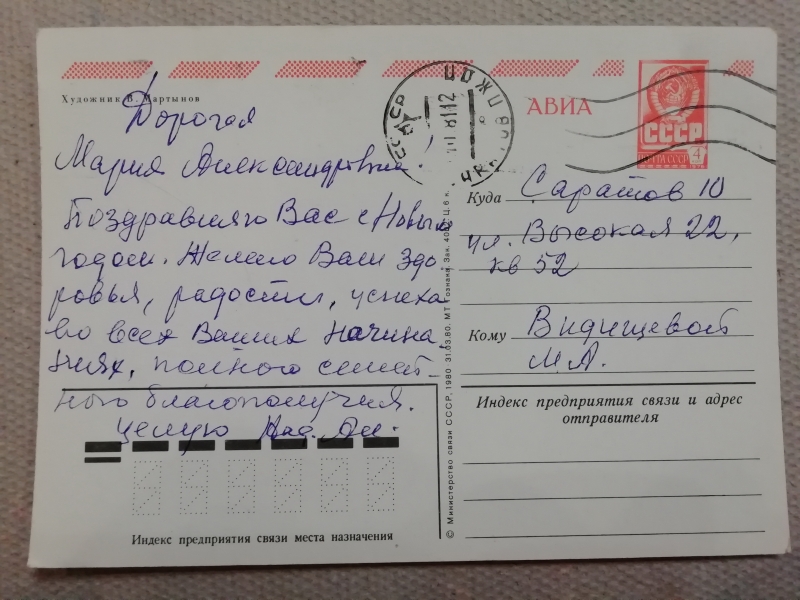 Художник В. Мартынов
АВИА
СССР
ПОЧТА СССР
4
Дорогая
Мария Александровна!
Поздравляю Вас с Новым
годом. Желаю Вам здо
ровья, радости, успеха
во всех Ваших начина
ниях, полного семей-
ного благополучия.
Целую
Куда Саратов 10
ул. Высокая 22,
кв 52
Кому Видищевой
М.А.
Индекс предприятия связи и адрес
отправителя
Индекс предприятия связи места назначения
© Министерство связи СССР, 1980 31.03.80. МТ Гознака. Зак.